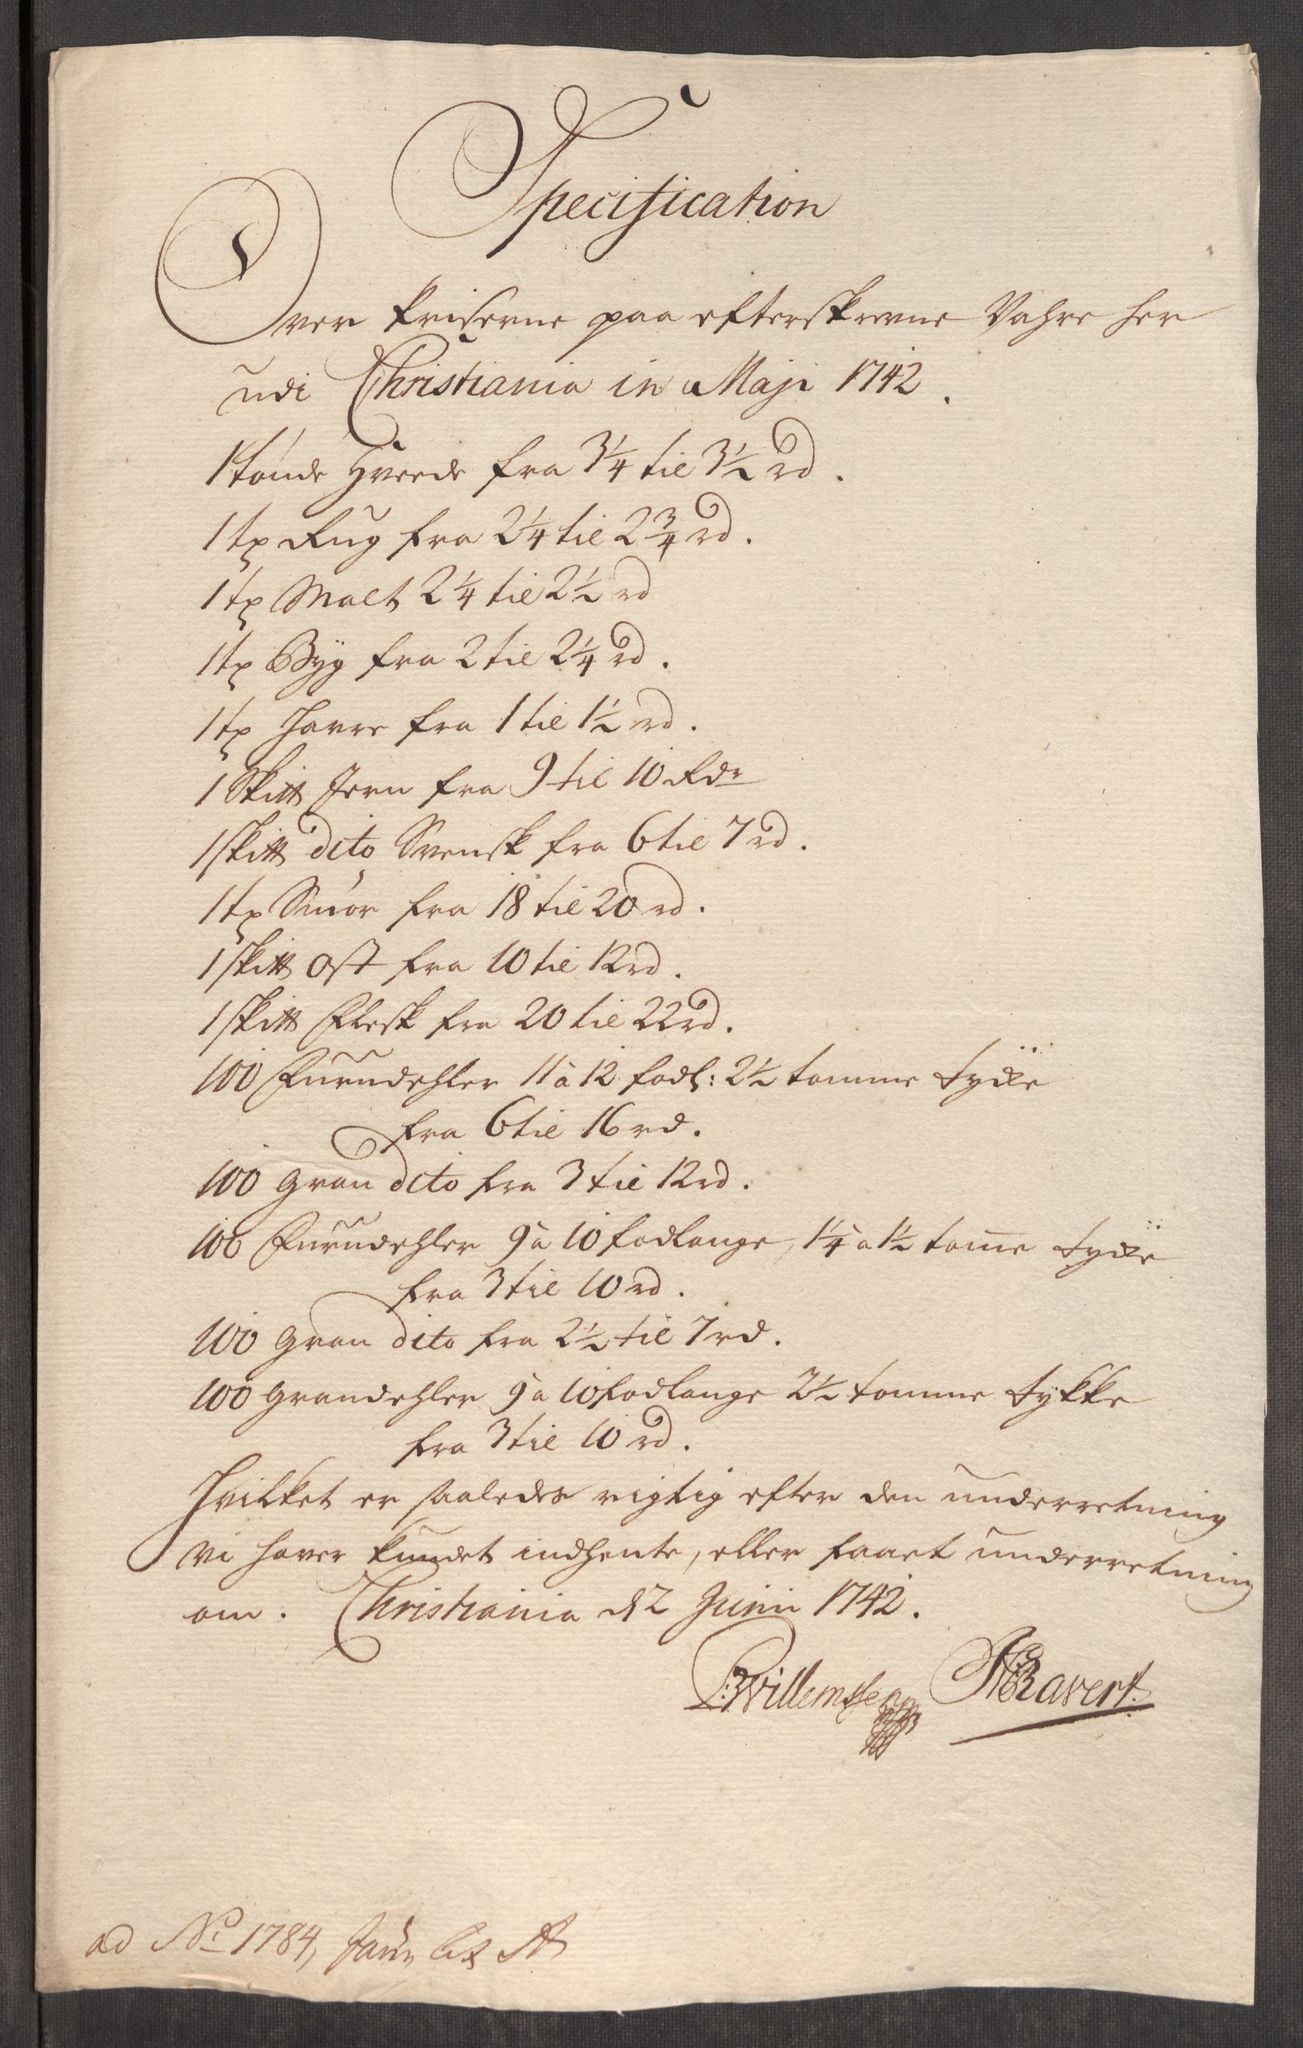 Specification
Over Priserne paa efterskrevne Vahre her
udi Christiania in Maji 1742.
1 tønde Hveede fra 3¼ til 3½ rd.
1 tø Rug fra 2¼ til 2¾ rd.
1 tø Malt 2¼ til 2½ rd
1 tø Byg fra 2 til 2¼ rd.
1 tø Havre fra 1 til 1½ rd.
1 Skitt Jern fra 9 til 10 Rdr
1 skitt dito Svensk fra 6 til 7 rd.
1 tø Smør fra 18 til 20 rd.
1 skitt Ost fra 10 til 12 rd.
1 skitt Flesk fra 20 til 22 rd.
100 Furudehler 11 à 12 fodl: 2½ tomme tycke
fra 6 til 16 rd.
100 gran dito fra 3 til 12 rd.
100 Furudehler 9 à 10 fodlange, 1¼ a 1½ tome tycke
fra 3 til 10 rd.
100 gran dito fra 2½ til 7 rd.
100 grandehler 9 a 10 fodlange 2½ tomme tykke
fra 3 til 10 rd.
Hvilket er saaledes rigtig efter den underretning
vi haver kundet indhente, eller faaet underretning
om. Christiania d 2 Junii 1742.
Willemsen Ravert
ad No 1784, Lit A